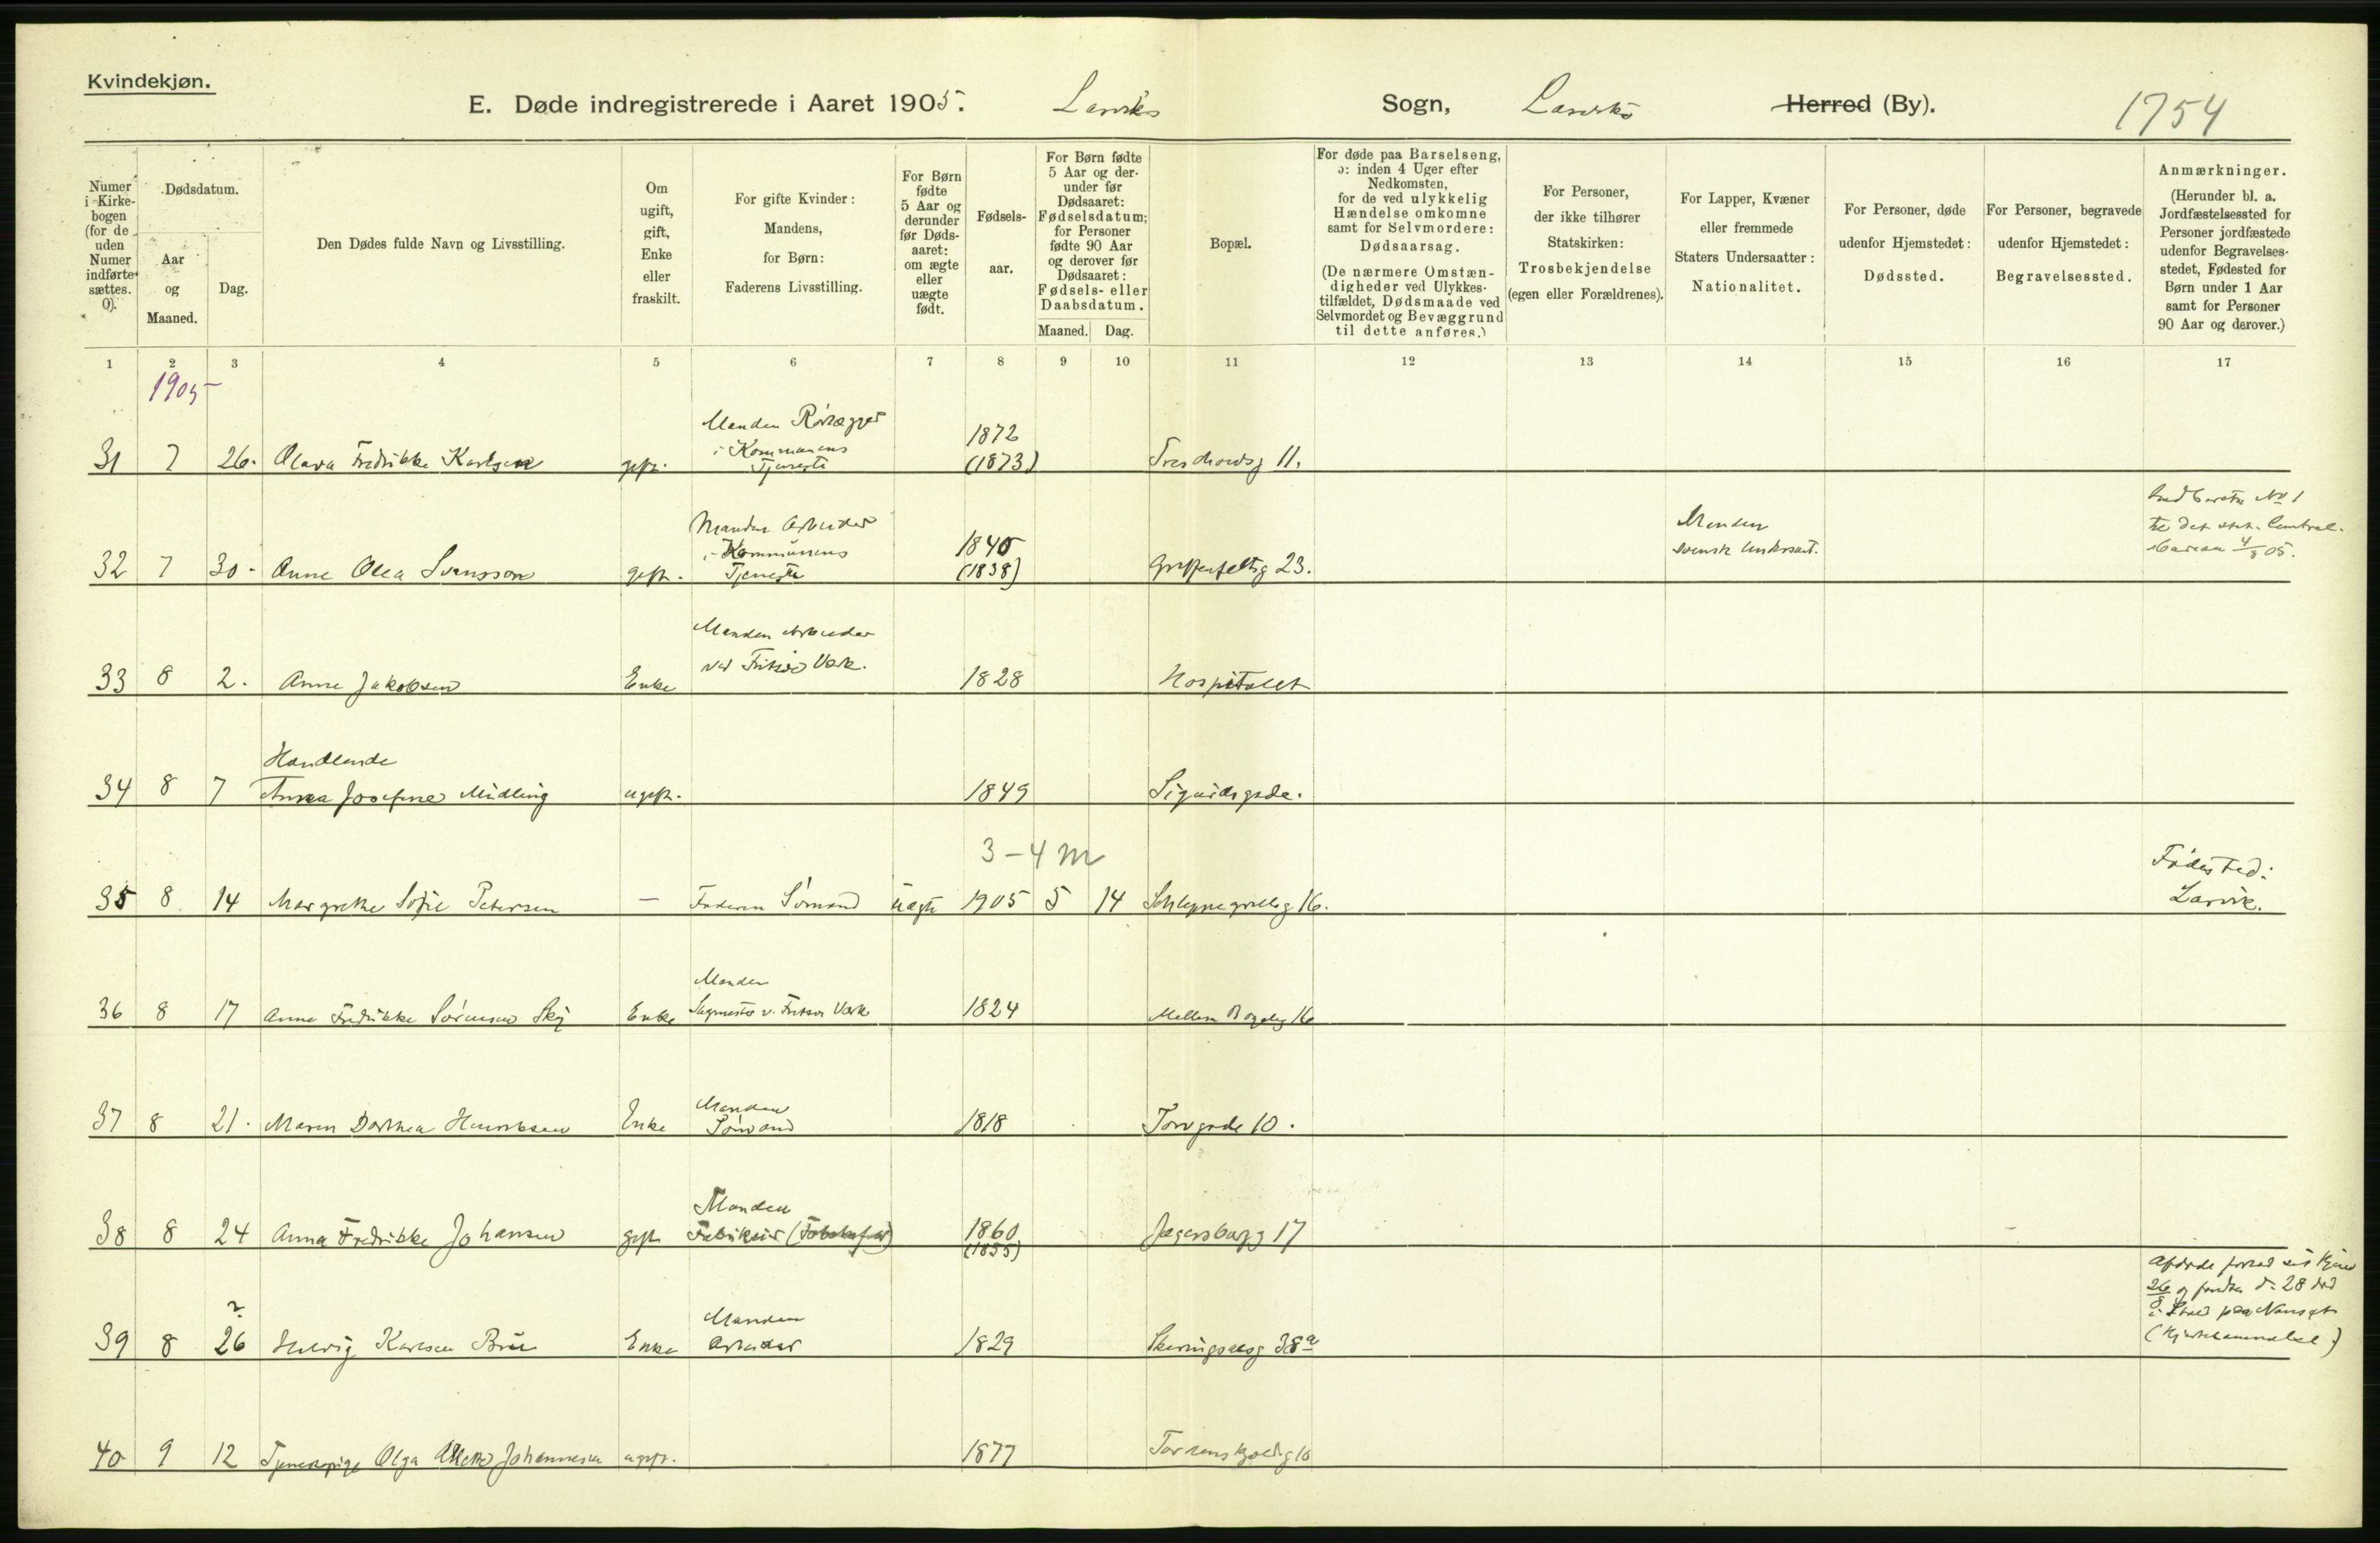 Kvindekjøn.
E. Døde indregistrerede i Aaret 1905. Larviks Sogn, Larviks Herred (By). 1754
Numer i Kirkebogen (for de uden Numer indførte sættes. 0).
Dødsdatum.
Aar og Maaned.
Dag.
Den Dødes fulde Navn og Livsstilling.
Om ugift, gift, Enke eller fraskilt.
For gifte Kvinder: Mandens, for Børn: Faderens Livsstilling.
For Børn fødte 5 Aar og derunder før Dødsaaret: om ægte eller uægte født.
Fødselsaar.
For Børn fødte 5 Aar og derunder før Dødsaaret: Fødselsdatum; for Personer fødte 90 Aar og derover før Dødsaaret: Fødsels- eller Daabsdatum.
Maaned. Dag.
Bopæl.
For døde paa Barselseng, ɔ: inden 4 Uger efter Nedkomsten, for de ved ulykkelig Hændelse omkomne samt for Selvmordere: Dødsaarsag.
(De nærmere Omstændigheder ved Ulykkestilfældet, Dødsmaade ved Selvmordet og Bevæggrund til dette anføres.)
For Personer, der ikke tilhører Statskirken: Trosbekjendelse (egen eller Forældrenes).
For Lapper, Kvæner eller fremmede Staters Undersaatter: Nationalitet.
For Personer, døde udenfor Hjemstedet: Dødssted.
For Personer, begravede udenfor Hjemstedet: Begravelsessted.
Anmærkninger.
(Herunder bl. a. Jordfæstelsessted for Personer jordfæstede udenfor Begravelsesstedet, Fødested for Børn under 1 Aar samt for Personer 90 Aar og derover.)
1 2 3 4 5 6 7 8 9 10 11 12 13 14 15 16 17
1905
31 7 26. Olava Fredrikke Karlsen gift. Manden i Kommunens Tjeneste 1872 (1873) Treschowsg 11.
32 7 30. Anne Olea Svensson gift. Manden Arbeider i Kommunens Tjeneste 1840 (1838) Griffenfeltsg 23. Manden svensk Undersaat. No 1 det stat. Central 4/8 05.
33 8 2. Anne Jakobsen Enke Manden Arbeider ved Fritzøe Værk. 1828 Hospitalet
34 8 7 Handlende Anna Josefine Midling ugift. 1849 Sigurdsgade.
3-4 m
35 8 14 Margrethe Sofie Petersen — Faderen Sømand uægte 1905 5 14 Schleppegrellsg 16. Fødested: Larvik.
36 8 17 Anne Fredrikke Sørensen Enke Manden Sagmester v. Fritzøe Værk 1824 Mellem 16
37 8 21. Maren Dorthea Henriksen Enke Manden Sømand 1818 Torvgade 10.
38 8 24 Anna Fredrikke Johansen gift Manden 1860 (1855) Jegersborgg 17
39 8 26 ? Hedvig Karlsen Enke Manden Arbeider 1829 Skiringssalsg 38a 26/8 og fundet d. 28 død i paa Nanset
40 9 12 Tjenestepige Olga Johannesen ugift. 1877 Tordenskjoldsg 10